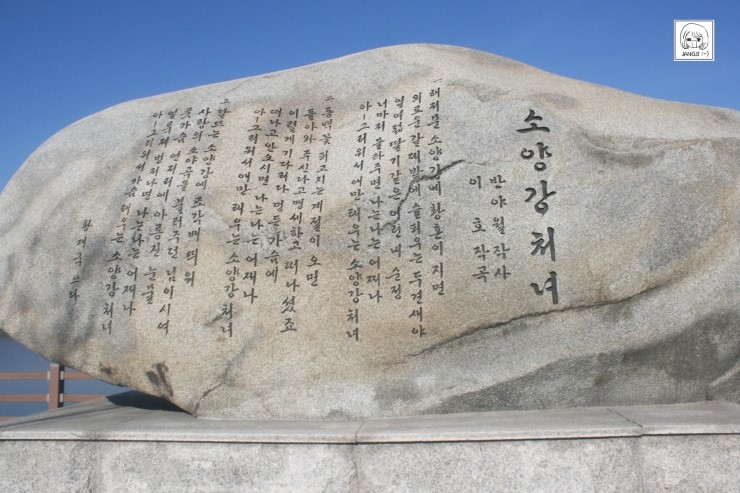 소양강 처녀
반야월 작사
이 호 작곡
1. 해저문 소양강에 황혼이 지면
외로운 갈대밭에 슬피우는 두견새야
열여덟 딸기같은 어린 내 순정
너마저 몰라주면 나는나는 어쩌나
아-그리워서 애만 태우는 소양강 처녀
2. 동백꽃 피고지는 계절이 오면
돌아와 주신다고 맹세하고 떠나셨죠
이렇게 기다리다 멍든 가슴에
떠나고 안오시면 나는나는 어쩌나
아-그리워서 애만 태우는 소양강 처녀
3. 달뜨는 소양강에 조각배 띄워
사랑의 소야곡을 불러주던 님이시여
풋가슴 언저리에 아롱진 눈물
얼룩져 번져나면 나는나는 어쩌나
아-그리워서 가슴태우는 소양강 처녀
황재국 쓰다
JANGJI :-)